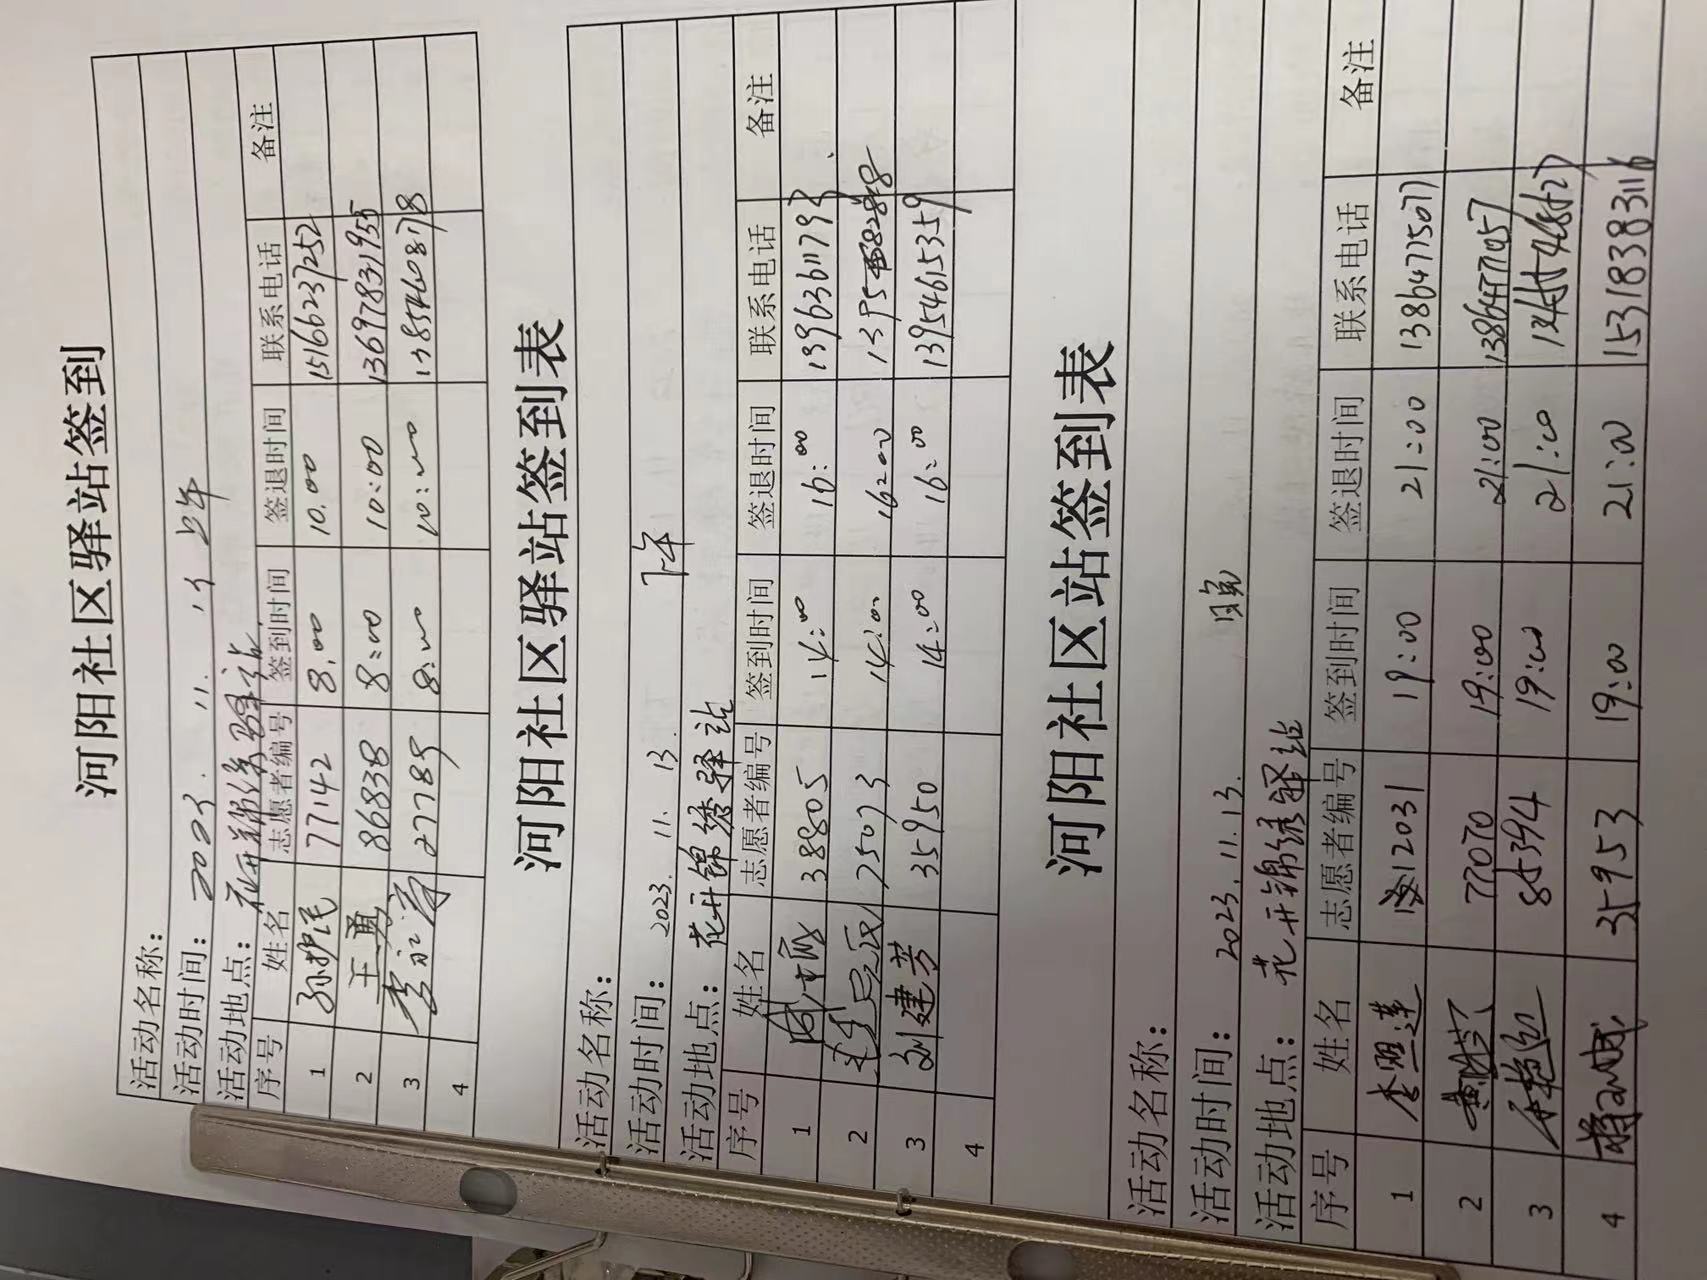 河阳社区驿站签到
活动名称：
活动时间： 2023. 11. 上午
活动地点： 花开锦绣驿站
序号 姓名 志愿者编号 签到时间 签退时间 联系电话 备注
1 孙护民 77142 8:00 10:00 15166237252
2 王勇 86838 8:00 10:00 13697831955
3 27785 8:00 10:00
4
河阳社区驿站签到表
活动名称：
活动时间： 2023. 11. 13. 下午
活动地点： 花开锦绣驿站
序号 姓名 志愿者编号 签到时间 签退时间 联系电话 备注
1 38805 14:00 16:00
2 75073 14:00 16:00
3 刘建芳 35950 14:00 16:00 13954615359
4
河阳社区驿站签到表
活动名称：
活动时间： 2023. 11. 13.
活动地点： 花开锦绣驿站
序号 姓名 志愿者编号 签到时间 签退时间 联系电话 备注
1 李照莲 12031 19:00 21:00 13864775077
2 77070 19:00 21:00
3 85394 19:00 21:00
4 35953 19:00 21:00 15318383116